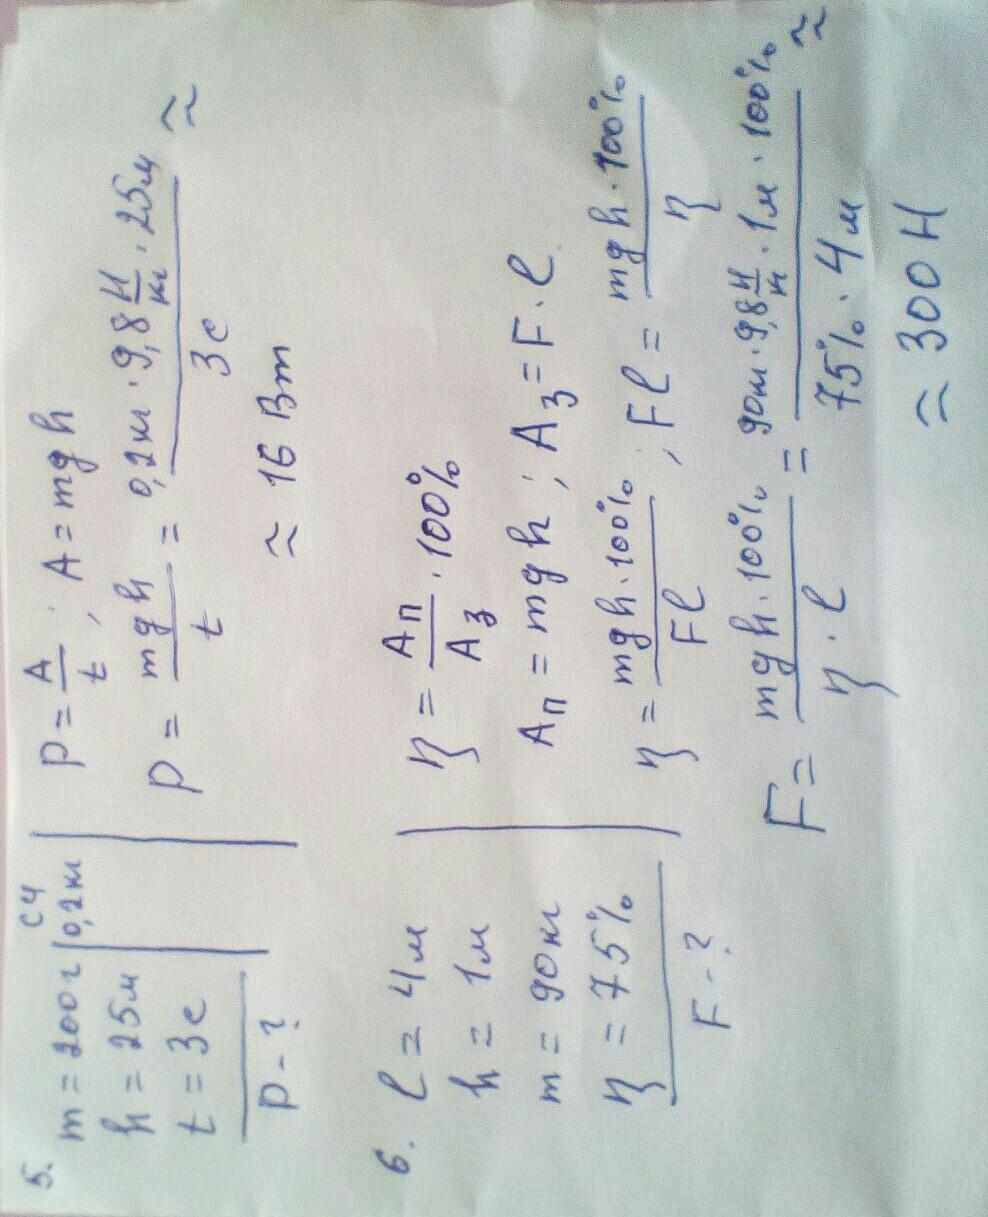 5. m = 200г | 0,2кг
СИ
h = 25м
t = 3с
P - ?
P = A/t ; A = mgh
P = mgh/t = 0,2кг · 9,8 Н/кг · 25м / 3с ≈
≈ 16 Вт
6. l = 4м
h = 1м
m = 90кг
η = 75%
F - ?
η = Aп/Aз · 100%
Aп = mgh ; Aз = F · l
η = mgh · 100% / Fl ; Fl = mgh · 100% / η
F = mgh · 100% / η · l = 90кг · 9,8 Н/кг · 1м · 100% / 75% · 4м ≈
≈ 300 Н